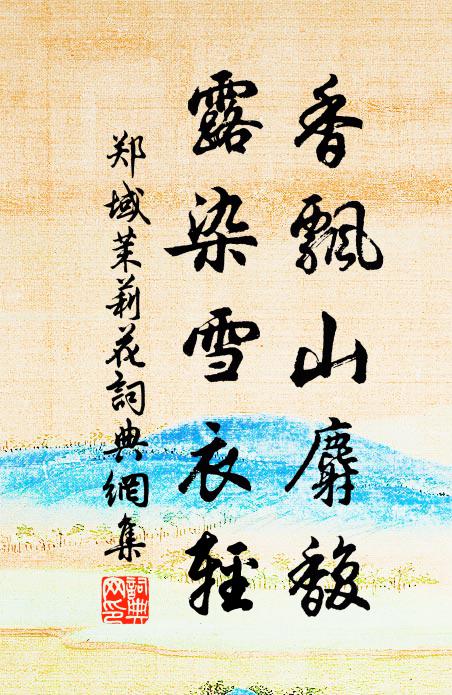 香飄山麝馥
露染雪衣輕
郑域茉莉花詞典網集
詞典